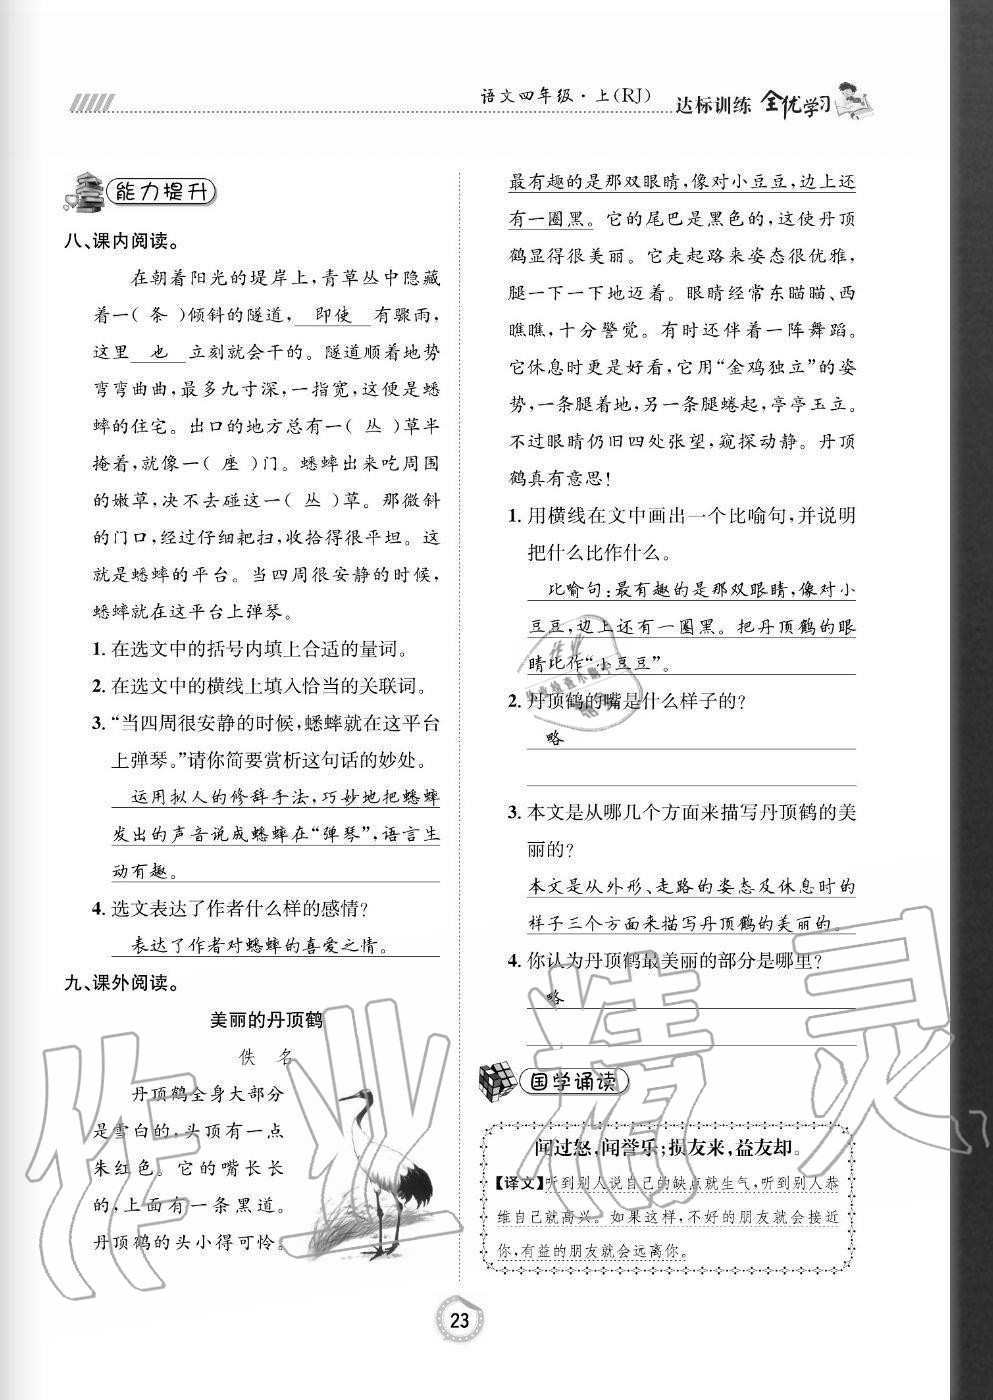 语文四年级·上(RJ)
达标训练 全优学习
能力提升
八、课内阅读。
在朝着阳光的堤岸上,青草丛中隐藏
着一( 条 )倾斜的隧道, 即使 有骤雨,
这里 也 立刻就会干的。隧道顺着地势
弯弯曲曲,最多九寸深,一指宽,这便是蟋
蟀的住宅。出口的地方总有一( 丛 )草半
掩着,就像一( 座 )门。蟋蟀出来吃周围
的嫩草,决不去碰这一( 丛 )草。那微斜
的门口,经过仔细耙扫,收拾得很平坦。这
就是蟋蟀的平台。当四周很安静的时候,
蟋蟀就在这平台上弹琴。
1. 在选文中的括号内填上合适的量词。
2. 在选文中的横线上填入恰当的关联词。
3. “当四周很安静的时候,蟋蟀就在这平台
上弹琴。”请你简要赏析这句话的妙处。
运用拟人的修辞手法,巧妙地把蟋蟀
发出的声音说成蟋蟀在“弹琴”,语言生
动有趣。
4. 选文表达了作者什么样的感情?
表达了作者对蟋蟀的喜爱之情。
九、课外阅读。
美丽的丹顶鹤
佚 名
丹顶鹤全身大部分
是雪白的,头顶有一点
朱红色。它的嘴长长
的,上面有一条黑道。
丹顶鹤的头小得可怜。
最有趣的是那双眼睛,像对小豆豆,边上还
有一圈黑。它的尾巴是黑色的,这使丹顶
鹤显得很美丽。它走起路来姿态很优雅,
腿一下一下地迈着。眼睛经常东瞄瞄、西
瞧瞧,十分警觉。有时还伴着一阵舞蹈。
它休息时更是好看,它用“金鸡独立”的姿
势,一条腿着地,另一条腿蜷起,亭亭玉立。
不过眼睛仍旧四处张望,窥探动静。丹顶
鹤真有意思!
1. 用横线在文中画出一个比喻句,并说明
把什么比作什么。
比喻句:最有趣的是那双眼睛,像对小
豆豆,边上还有一圈黑。把丹顶鹤的眼
睛比作“小豆豆”。
2. 丹顶鹤的嘴是什么样子的?
略
3. 本文是从哪几个方面来描写丹顶鹤的美
丽的?
本文是从外形、走路的姿态及休息时的
样子三个方面来描写丹顶鹤的美丽的。
4. 你认为丹顶鹤最美丽的部分是哪里?
略
国学诵读
闻过怒,闻誉乐;损友来,益友却。
【译文】听到别人说自己的缺点就生气,听到别人恭
维自己就高兴。如果这样,不好的朋友就会接近
你,有益的朋友就会远离你。
23
作业精灵